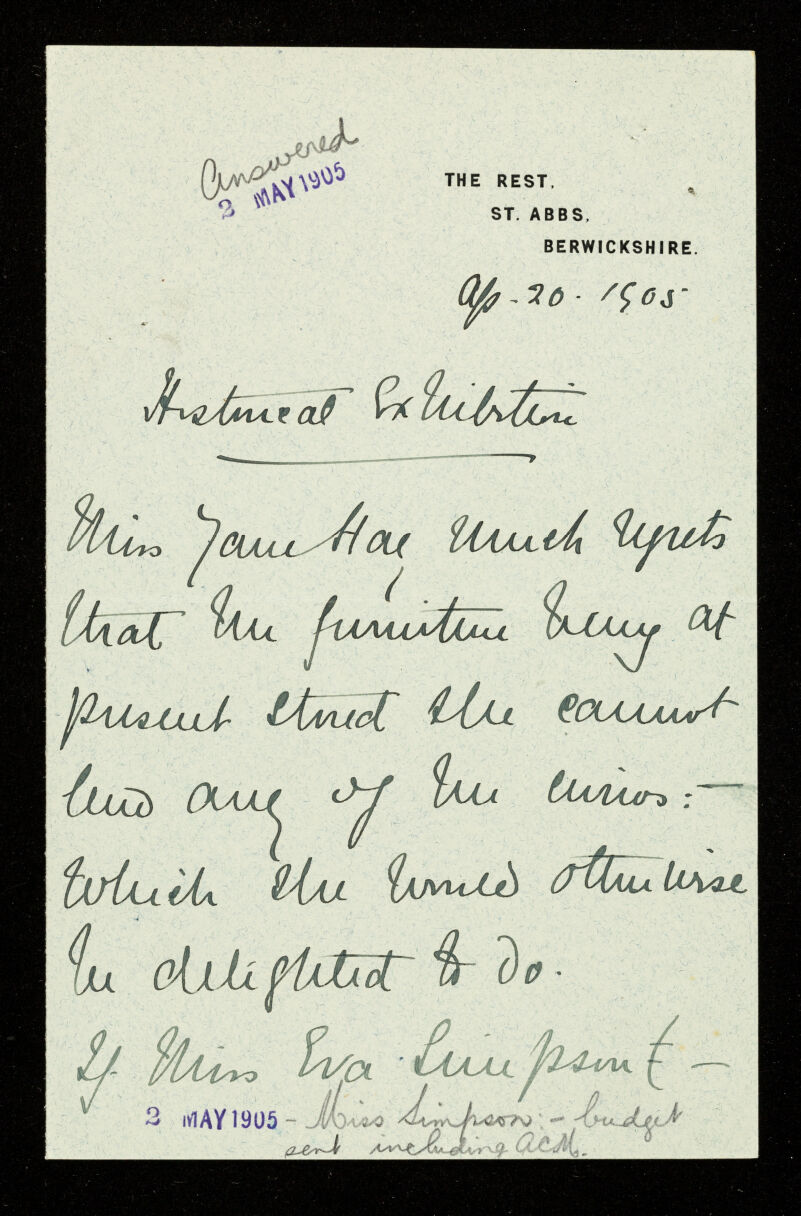 Answered
2 MAY 1905
THE REST,
ST. ABBS,
BERWICKSHIRE.
Ap. 20. 1905
Historical Exhibition
Miss Jane Hay much regrets
that her furniture being at
present stored she cannot
lend any of her curios:—
which she would otherwise
be delighted to do.
If Miss Eva Simpson (—
2 MAY 1905 - Miss Simpson:- budget
sent including ACM.